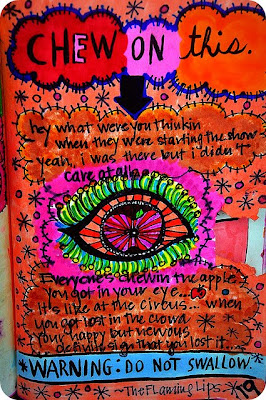 CHEW ON this.
hey what were you thinkin
when they were starting the show
yeah, i was there but i didn't
care at all
Everyone's chewin the apple
you got in your eye...
It's like at the circus... when
you got lost in the crowd
Your happy but nervous
sign that you lost it...
WARNING: DO NOT SWALLOW.
~The Flaming Lips.